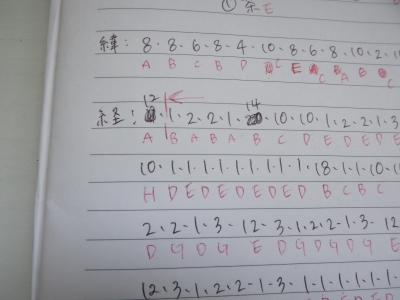 ①糸E
緯: 8.8.6.8.4.10.8.6.8.10.2.10
A B C B D C E C B A B C
12 14
経: .1.2.2.1. .10.10.1.2.2.1.3
A B A B A B C D E D E D E
10.1.1.1.1.1.1.1.1.18.1.1.10.10
H D E D E D E D E D B C B C
2.2.1.3.12.3.1.2.2.1.3.12
D G D G E D G D G D G E
12.3.1.2.2.1.3.1.1.1.1.1.1